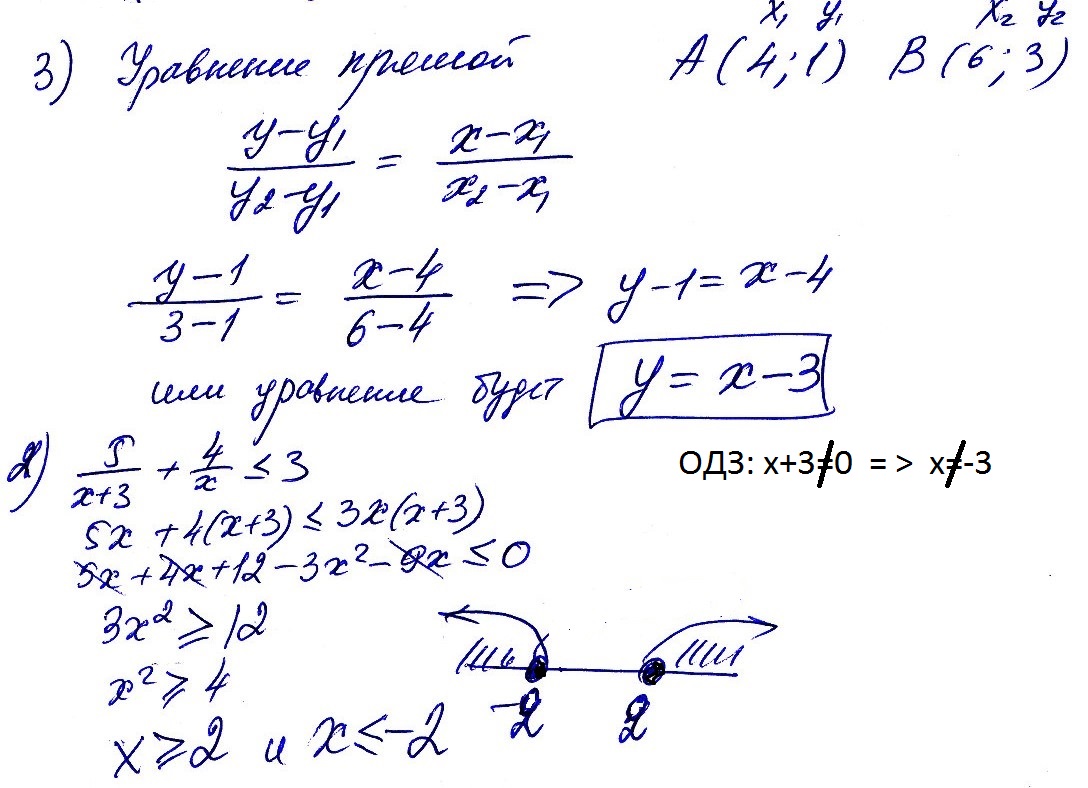 x₁ y₁ x₂ y₂
3) Уравнение прямой A(4;1) B(6;3)
(y-y₁)/(y₂-y₁) = (x-x₁)/(x₂-x₁)
(y-1)/(3-1) = (x-4)/(6-4) => y-1=x-4
или уравнение будет y=x-3
2) 5/(x+3) + 4/x ≤ 3 ОДЗ: x+3≠0 => x≠-3
5x+4(x+3)≤3x(x+3)
5x+4x+12-3x²-9x≤0
3x²≥12
x²≥4
-2 2
x≥2 и x≤-2